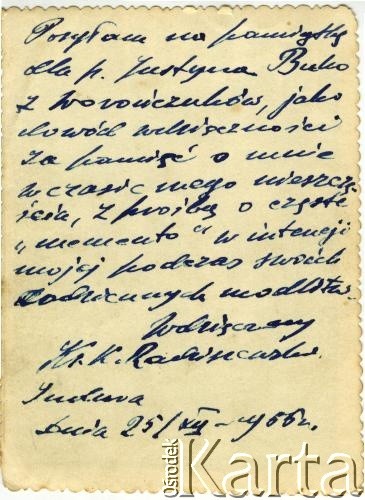 Posyłam na pamiątkę
dla p. Justyna Buko
z Worończuków, jako
dowód wdzięczności
za pamięć o mnie
w czasie mego nieszczę-
ścia, z prośbą o częste
„memento” w intencji
mojej podczas swoich
codziennych modlitw.
Wdzięczny
Ks. K. Radziszewski.
Indura
Dnia 25/XII-1956 r.
ośrodek
Karta